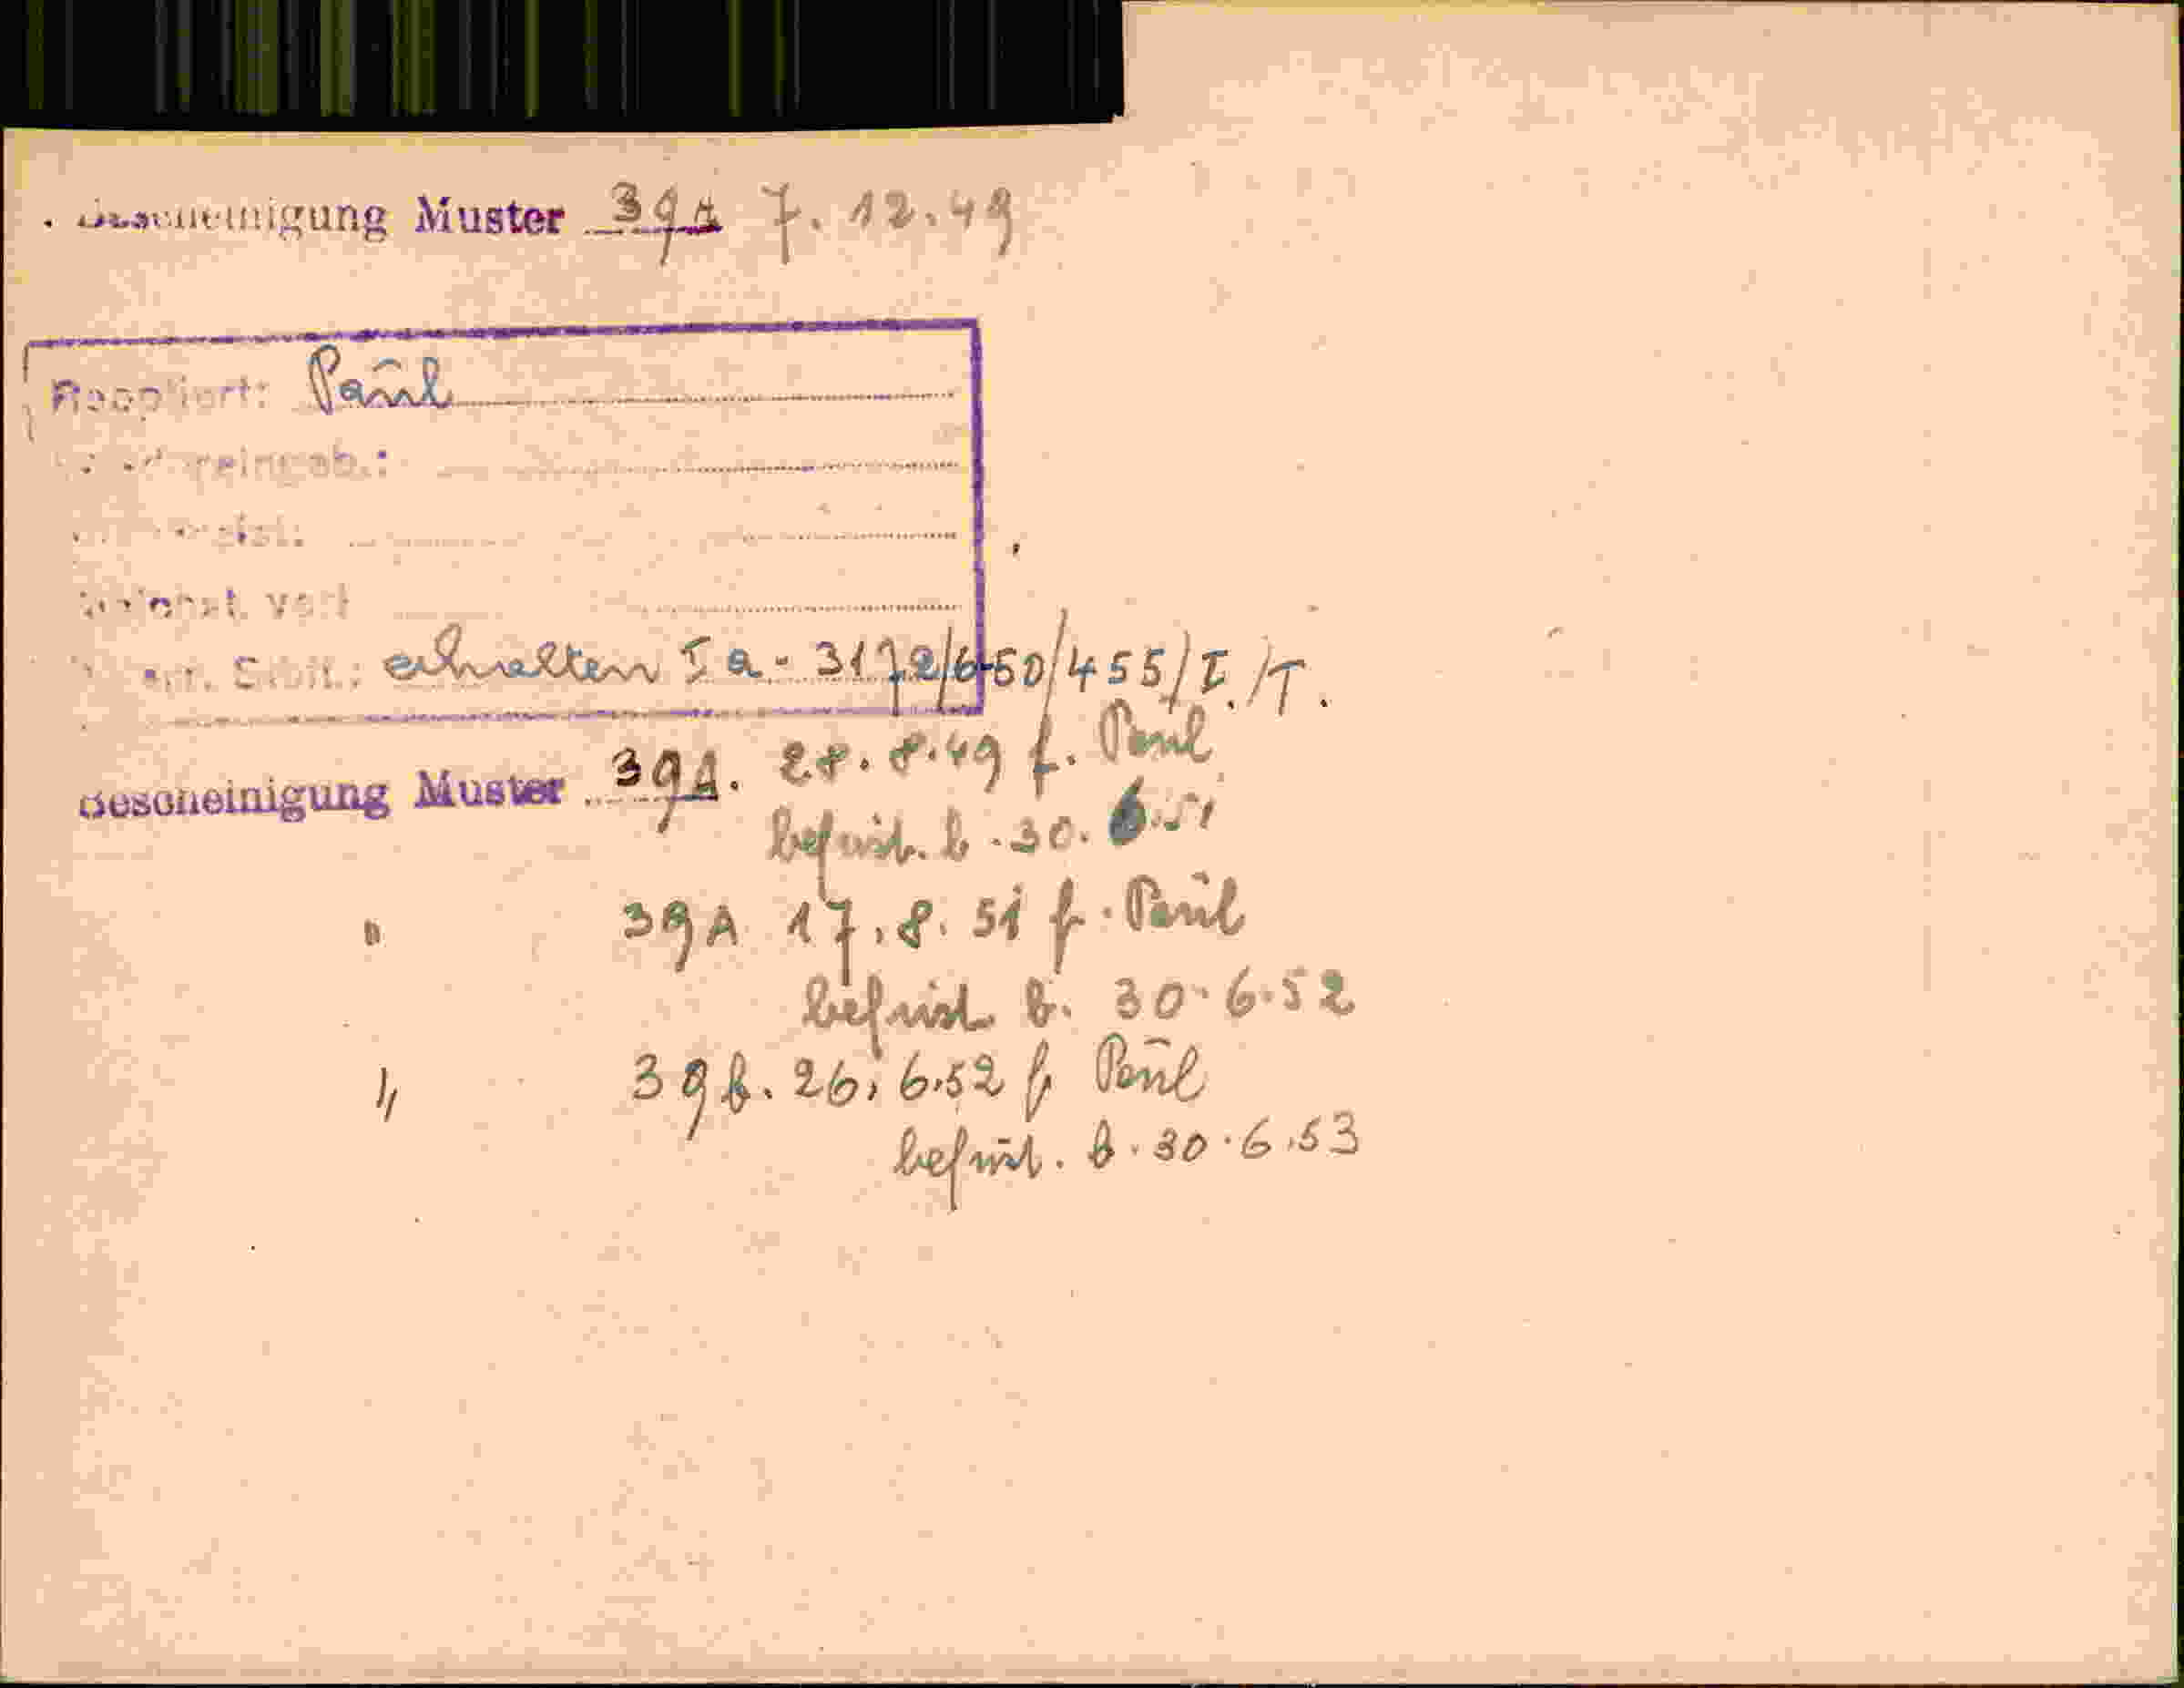 Bescheinigung Muster 39A 7.12.49
Reoptiert: Paul
erhalten I a - 3172/6-50/455/I./T.
Bescheinigung Muster 39A. 28.8.49 f. Paul
befrist. b. 30.6.51
" 39A 17.8.51 f. Paul
befrist. b. 30.6.52
" 39b. 26.6.52 f. Paul
befrist. b. 30.6.53